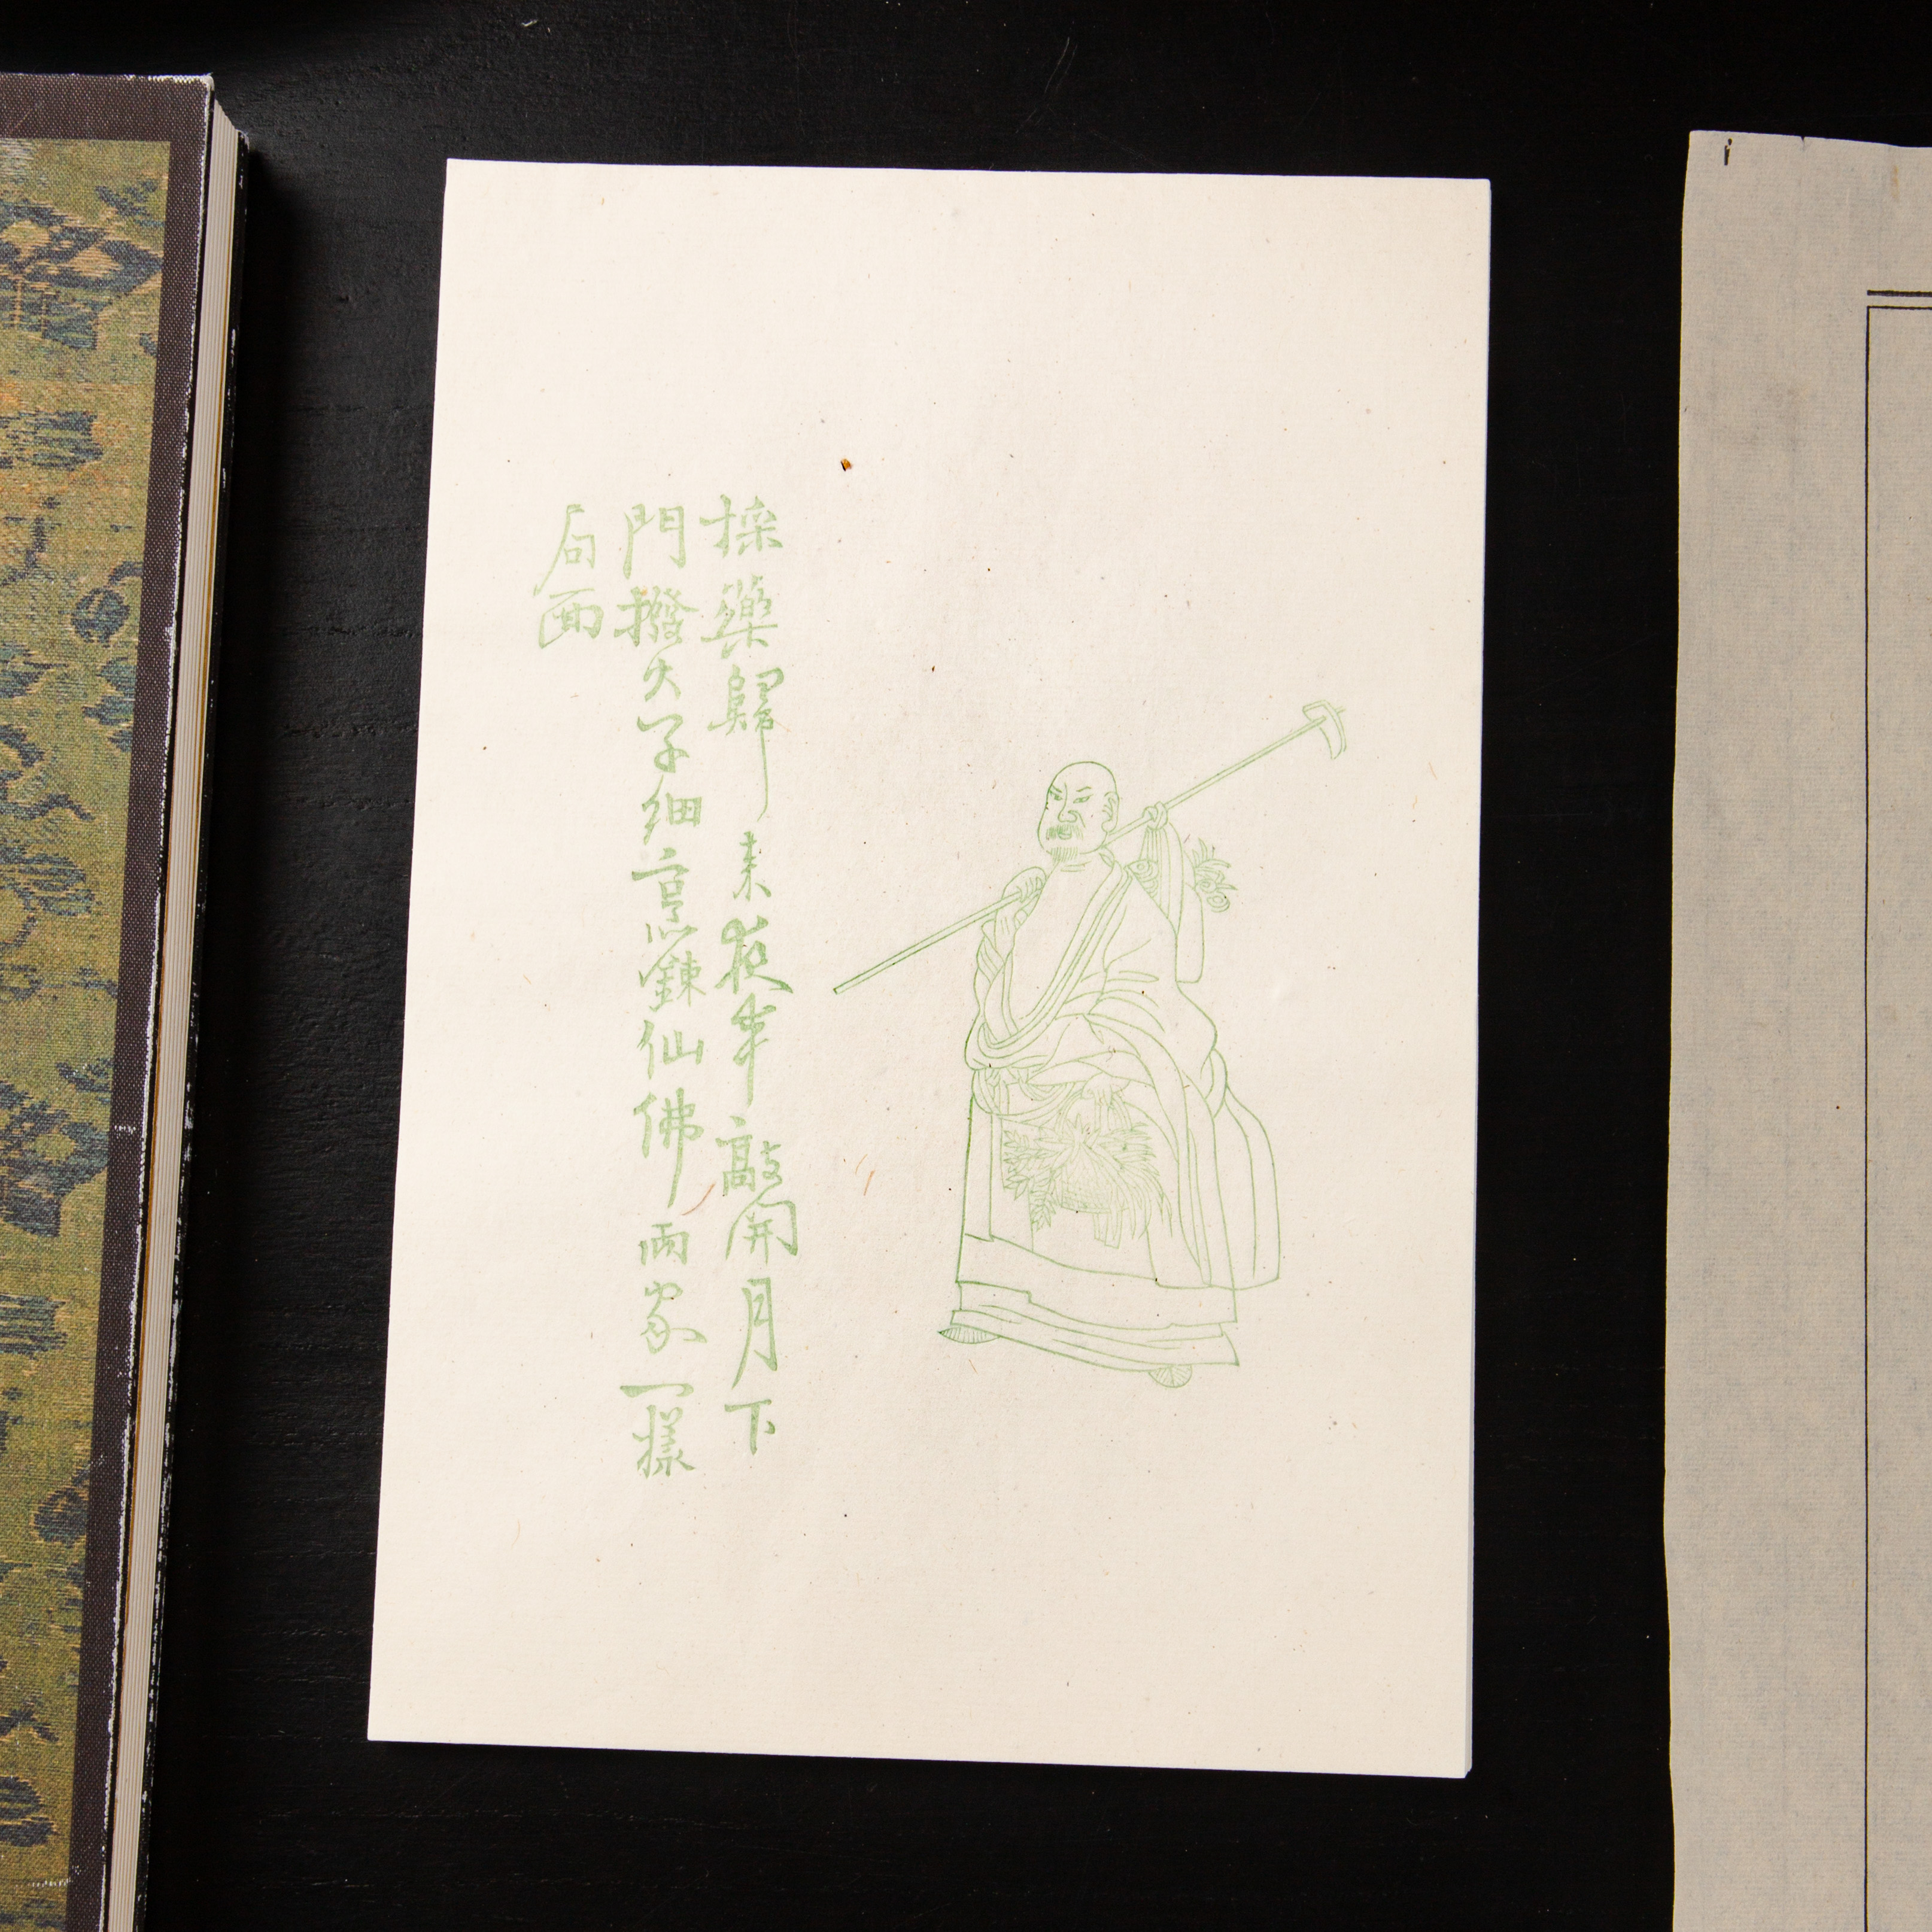 採藥歸来夜半敲開月下
門撥火子细烹鍊仙佛兩家一樣
局面